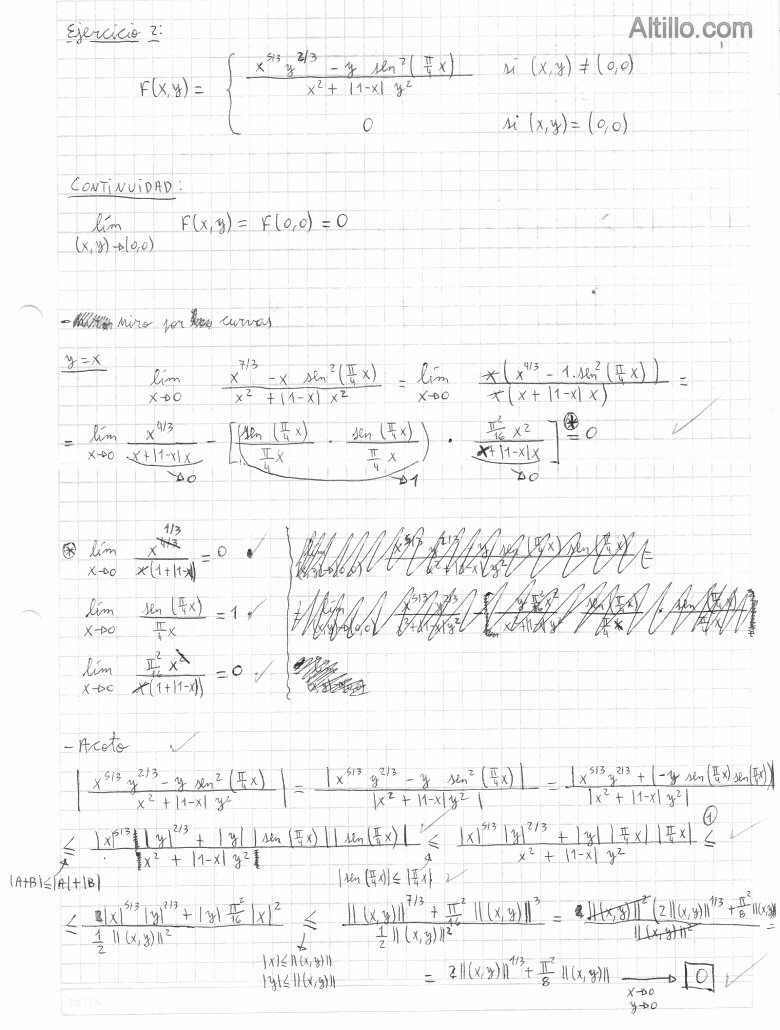 Altillo.com
Ejercicio 2:
F(x,y) = { (x^{5/3} y^{2/3} - y sen²(π/4 x)) / (x² + |1-x| y²) si (x,y) ≠ (0,0)
0 si (x,y) = (0,0)
CONTINUIDAD:
lím_{(x,y)→(0,0)} F(x,y) = F(0,0) = 0
- miro por curvas
y = x
lím_{x→0} (x^{7/3} - x sen²(π/4 x)) / (x² + |1-x| x²) = lím_{x→0} x(x^{4/3} - 1. sen²(π/4 x)) / x(x + |1-x| x) =
= lím_{x→0} x^{4/3} / (x + |1-x| x) →0 - [(sen(π/4 x) / (π/4 x) . sen(π/4 x) / (π/4 x)) →1 . (π²/16 x²) / (x + |1-x| x) →0] =^{⊛} 0
⊛ lím_{x→0} x^{1/3} / (x(1+|1-x|)) = 0
lím_{x→0} sen(π/4 x) / (π/4 x) = 1
lím_{x→0} (π²/16 x²) / (x(1+|1-x|)) = 0
- Acoto
|(x^{5/3} y^{2/3} - y sen²(π/4 x)) / (x² + |1-x| y²)| = |x^{5/3} y^{2/3} - y sen²(π/4 x)| / |x² + |1-x| y²| = |x^{5/3} y^{2/3} + (-y sen(π/4 x) sen(π/4 x))| / |x² + |1-x| y²|
≤ (|x|^{5/3} |y|^{2/3} + |y| |sen(π/4 x)| |sen(π/4 x)|) / (x² + |1-x| y²) ≤ (|x|^{5/3} |y|^{2/3} + |y| |π/4 x| |π/4 x|) / (x² + |1-x| y²) ≤^{①}
|A+B| ≤ |A| + |B| |sen(π/4 x)| ≤ |π/4 x|
≤ (|x|^{5/3} |y|^{2/3} + |y| π²/16 |x|²) / (1/2 ||(x,y)||²) ≤ (||(x,y)||^{7/3} + π²/16 ||(x,y)||³) / (1/2 ||(x,y)||²) = ||(x,y)||² (2||(x,y)||^{1/3} + π²/8 ||(x,y)||) / ||(x,y)||² =
|x| ≤ ||(x,y)||
|y| ≤ ||(x,y)||
= 2||(x,y)||^{1/3} + π²/8 ||(x,y)|| → 0
x→0
y→0